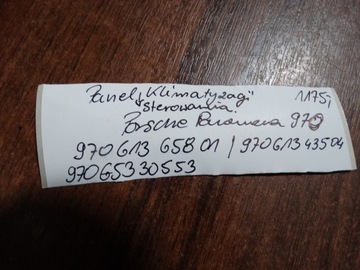 Panel "Klimatyzacji" 1175,
sterowania.
Porsche Panamera 970
970 613 658 01 / 970 613 435 04
970 653 305 53